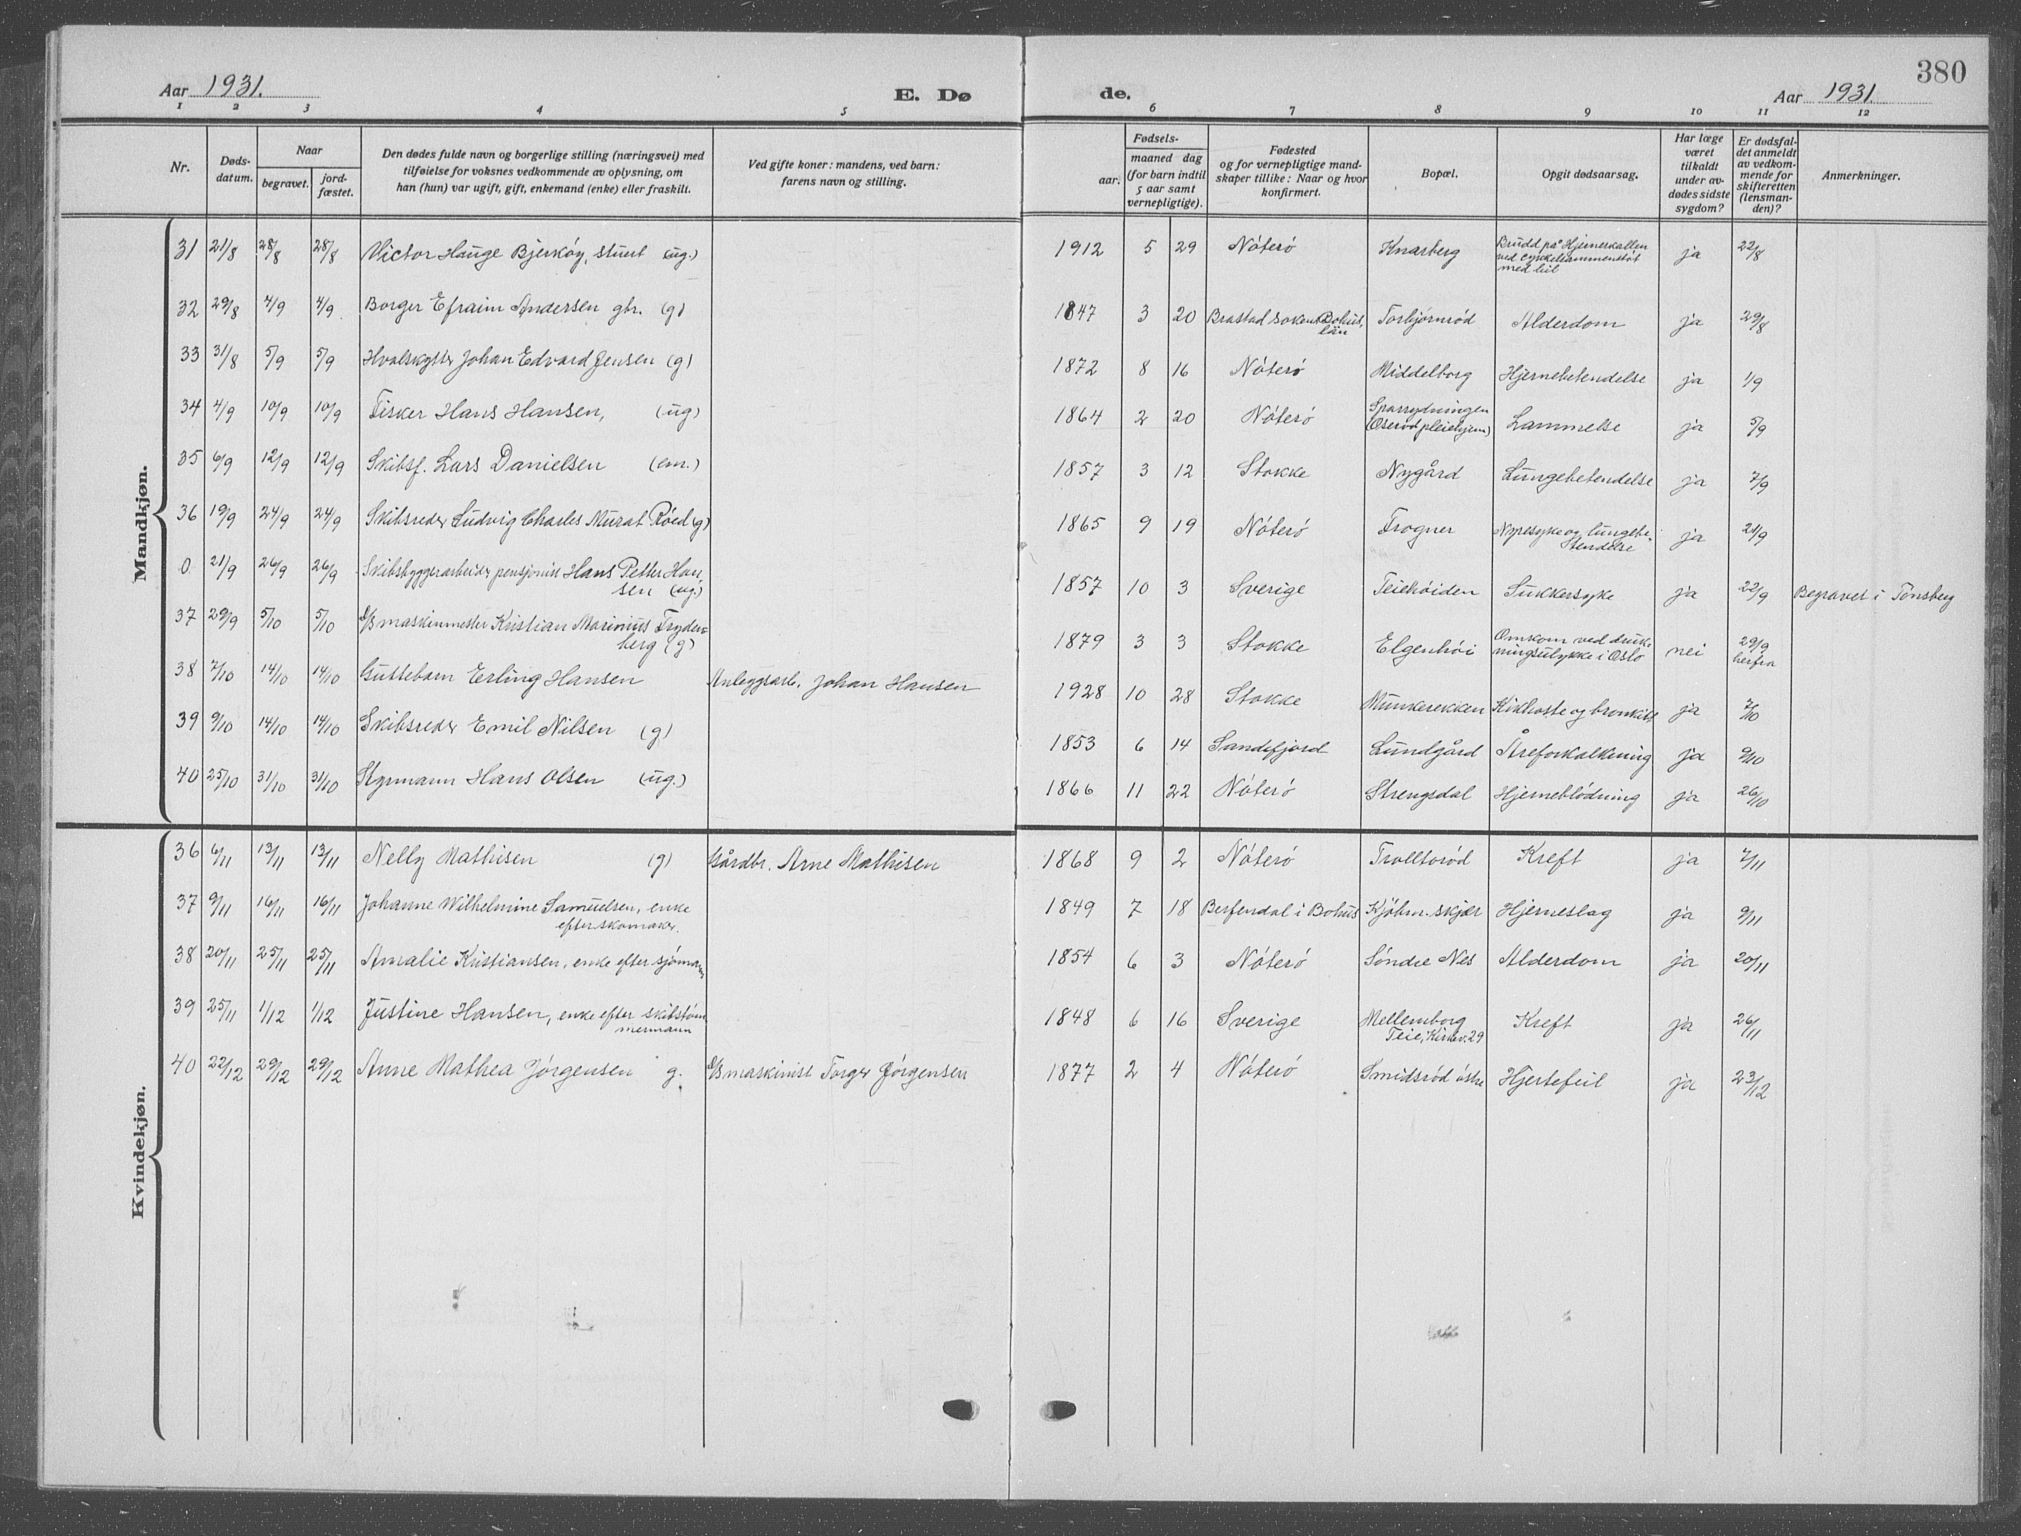 380
Aar 1931. E. Dø de. Aar 1931.
1 2 3 4 5 6 7 8 9 10 11 12
Nr. | Døds-datum. | Naar begravet. | jord-fæstet. | Den dødes fulde navn og borgerlige stilling (næringsvei) med tilføielse for voksnes vedkommende av oplysning, om han (hun) var ugift, gift, enkemand (enke) eller fraskilt. | Ved gifte koner: mandens, ved barn: farens navn og stilling. | Fødsels- aar. | maaned dag (for barn indtil 5 aar samt vernepligtige). | Fødested og for vernepligtige mandskaper tillike: Naar og hvor konfirmert. | Bopæl. | Opgit dødsaarsag. | Har læge været tilkaldt under avdødes sidste sygdom? | Er dødsfaldet anmeldt av vedkommende for skifteretten (lensmanden)? | Anmerkninger.
Mandkjøn.
31 | 21/8 | 28/8 | 28/8 | Victor Hauge Bjerkøy, stuert (ug.) | | 1912 | 5 | 29 | Nøterø | Knarberg | Brudd på Hjerneskallen ved cykkelsammenstøt med bil | ja | 22/8
32 | 29/8 | 4/9 | 4/9 | Borger Efraim Andersen gbr. (g) | | 1847 | 3 | 20 | Brastad soken Bohus län | Torbjørnrød | Alderdom | ja | 29/8
33 | 31/8 | 5/9 | 5/9 | Hvalskytter Johan Edvard Jensen (g) | | 1872 | 8 | 16 | Nøterø | Middelborg | Hjernebetendelse | ja | 1/9
34 | 4/9 | 10/9 | 10/9 | Fisker Hans Hansen, (ug) | | 1864 | 2 | 20 | Nøterø | (Oserød pleiehjem) | Lammelse | ja | 5/9
35 | 6/9 | 12/9 | 12/9 | Skibsf. Lars Danielsen (em.) | | 1857 | 3 | 12 | Stokke | Nygård | Lungebetendelse | ja | 7/9
36 | 19/9 | 24/9 | 24/9 | Skibsreder Ludvig Charles Murat Røed (g) | | 1865 | 9 | 19 | Nøterø | Trogner | Nyresyke og lungebetendelse | ja | 21/9
0 | 21/9 | 26/9 | 26/9 | Skibsbyggerarbeider pensjonist Hans Petter Hansen (ug.) | | 1857 | 10 | 3 | Sverige | Teiehøiden | Sukkersyke | ja | 22/9 | Begravet i Tønsberg
37 | 29/9 | 5/10 | 5/10 | H/B maskinmester Kristian Marinius Frydenberg (g) | | 1879 | 3 | 3 | Stokke | Elgenhøi | Omkom ved drukningsulykke i Oslo | nei | 29/9 herfra
38 | 7/10 | 14/10 | 14/10 | Guttebarn Erling Hansen | Anleggsarb. Johan Hansen | 1928 | 10 | 28 | Stokke | Munkerekken | Kikhoste og bronkitt | ja | 7/10
39 | 9/10 | 14/10 | 14/10 | Skibsreder Emil Nilsen (g) | | 1853 | 6 | 14 | Sandefjord | Lundgård | Åreforkalkning | ja | 9/10
40 | 25/10 | 31/10 | 31/10 | Styrmann Hans Olsen (ug.) | | 1866 | 11 | 22 | Nøterø | Strengsdal | Hjerneblødning | ja | 26/10
Kvindekjøn.
36 | 6/11 | 13/11 | 13/11 | Nelly Mathisen (g) | Gårdbr. Arne Mathisen | 1868 | 9 | 2 | Nøterø | Trolltorød | Kreft | ja | 7/11
37 | 9/11 | 16/11 | 16/11 | Johanne Wilhelmine Samuelsen, enke efter skomaker. | | 1849 | 7 | 18 | Berfendal i Bohus | Kjøbm.skjær | Hjerneslag | ja | 9/11
38 | 20/11 | 25/11 | 25/11 | Amalie Kristiansen, enke efter sjømann | | 1854 | 6 | 3 | Nøterø | Søndre Nes | Alderdom | ja | 20/11
39 | 25/11 | 1/12 | 1/12 | Justine Hansen, enke efter skibstømmermann | | 1848 | 6 | 16 | Sverige | Mellemborg Teie, Kirkev. 29 | Kreft | ja | 26/11
40 | 22/12 | 29/12 | 29/12 | Anne Mathea Jørgensen g. | maskinist Torger Jørgensen | 1877 | 2 | 4 | Nøterø | Smidsrød østre | Hjertefeil | ja | 23/12